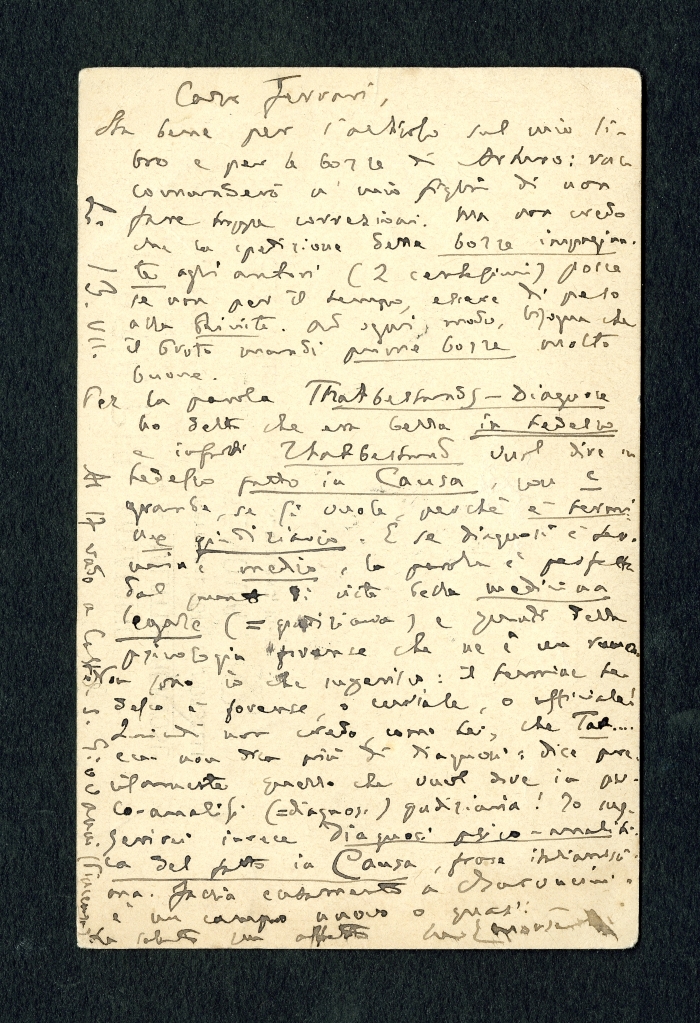 Caro Ferrari,
Sta bene per l'articolo sul mio li-
bro e per le bozze di Arturo:
di non
fare troppe correzioni. Ma non credo
che la spedizione delle bozze impagina-
te agli autori (2 centesimi) possa
se non per il tempo, essere di peso
alla Rivista. Ad ogni modo, bisogna che
il proto mandi prime bozze molto
buone.
Per la parola Thatbestands-diagnose
ho detto che era bella in tedesco
e infatti Thatbestand vuol dire in
tedesco fatto in Causa, con e
grande, se si vuole, perchè è termi-
ne giudiziario. E se diagnosi è ter-
mine medico, la parola è perfetta
dal punto di vista della medicina
legale (= giudiziaria) e quindi della
psicologia forense che ne è un ramo.
Non sono io che : il termine te-
desco è forense, o , o ufficiale!
Quindi non credo, come Lei, che Tat....
ecc. non dica più di diagnosi: dice pre-
cisamente quello che vuol dire in psi-
co-analisi (=diagnosi) giudiziaria! Io sug-
gerirei invece Diagnosi psico-analiti-
ca del fatto in Causa, frase italianissi-
ma. Faccia
è un campo nuovo o quasi!
La saluto con affetto
13. VII.
Al 17 vado a Castel S. Giovanni (Piacenza)